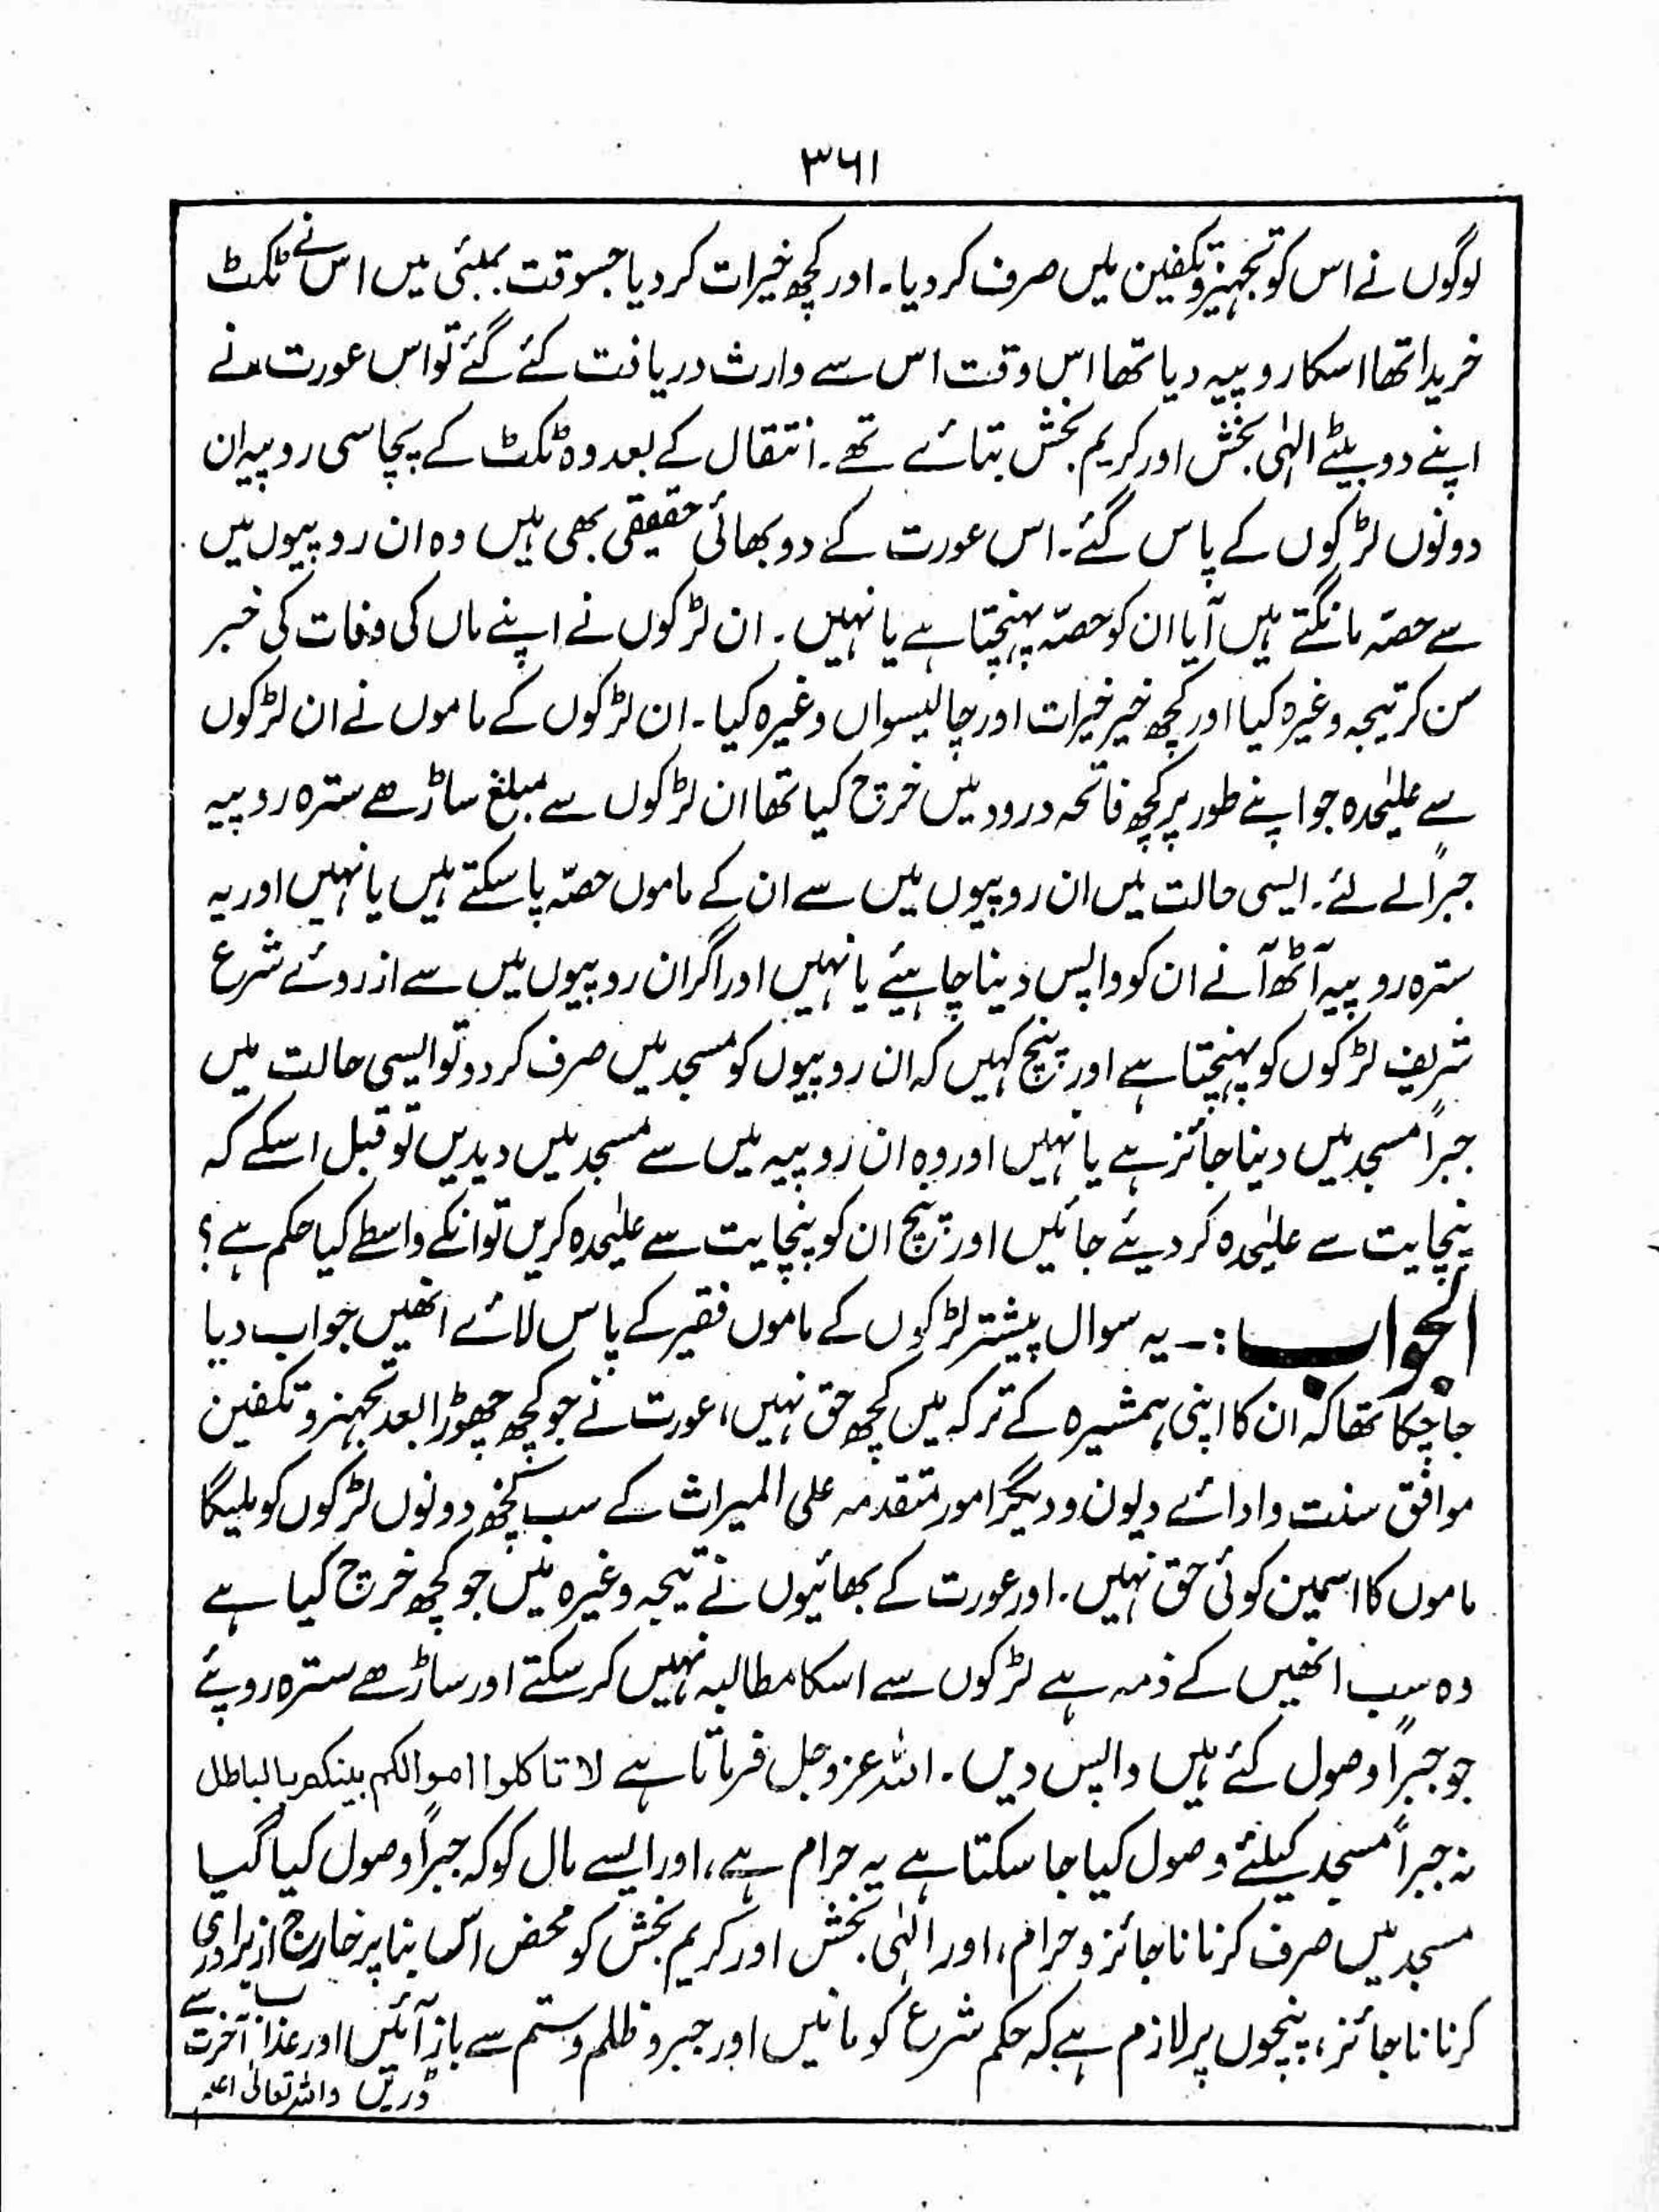 ۳۶۱
لوگوں نے اس کو تجہیز و تکفین میں صرف کر دیا۔ اور کچھ خیرات کر دیا جسوقت بمبئی میں اس نے ٹکٹ
خریدا تھا اسکا روپیہ دیا تھا اس وقت اس سے وارث دریافت کئے گئے تو اس عورت نے
اپنے دو بیٹے الہٰی بخش اور کریم بخش بتائے تھے۔ انتقال کے بعد وہ ٹکٹ کے پچاسی روپیہ ان
دونوں لڑکوں کے پاس گئے۔ اس عورت کے دو بھائی حقیقی بھی ہیں وہ ان روپیوں میں
سے حصّہ مانگتے ہیں آیا ان کو حصّہ پہنچتا ہے یا نہیں۔ ان لڑکوں نے اپنے ماں کی وفات کی خبر
سن کر تیجہ وغیرہ کیا اور کچھ خیر خیرات اور چالیسواں وغیرہ کیا۔ ان لڑکوں کے ماموں نے ان لڑکوں
سے علیٰحدہ جو اپنے طور پر کچھ فاتحہ درود میں خرچ کیا تھا ان لڑکوں سے مبلغ ساڑھے سترہ روپیہ
جبراً لے لئے۔ ایسی حالت میں ان روپیوں میں سے ان کے ماموں حصّہ پا سکتے ہیں یا نہیں اور یہ
سترہ روپیہ آٹھ آنے ان کو واپس دینا چاہیئے یا نہیں اور اگر ان روپیوں میں سے از روئے شرع
شریف لڑکوں کو پہنچتا ہے اور پنچ کہیں کہ ان روپیوں کو مسجد میں صرف کر دو تو ایسی حالت میں
جبراً مسجد میں دینا جائز ہے یا نہیں اور وہ ان روپیہ میں سے مسجد میں دیدیں تو قبل اسکے کہ
پنچایت سے علیٰحدہ کر دیئے جائیں اور پنچ ان کو پنچایت سے علیٰحدہ کریں تو انکے واسطے کیا حکم ہے؟
الجواب:۔ یہ سوال پیشتر لڑکوں کے ماموں فقیر کے پاس لائے انھیں جواب دیا
جا چکا تھا کہ ان کا اپنی ہمشیرہ کے ترکہ میں کچھ حق نہیں، عورت نے جو کچھ چھوڑا بعد تجہیز و تکفین
موافق سنت و ادائے دیون و دیگر امور متقدمہ علی المیراث کے سب کچھ دونوں لڑکوں کو ملیگا
ماموں کا اسمین کوئی حق نہیں۔ اور عورت کے بھائیوں نے تیجہ وغیرہ میں جو کچھ خرچ کیا ہے
وہ سب انھیں کے ذمہ ہے لڑکوں سے اسکا مطالبہ نہیں کر سکتے اور ساڑھے سترہ روپئے
جو جبراً وصول کئے ہیں واپس دیں۔ اللہ عزوجل فرماتا ہے لا تاکلوا اموالکم بینکم بالباطل
نہ جبراً مسجد کیلئے وصول کیا جا سکتا ہے یہ حرام ہے، اور ایسے مال کو کہ جبراً وصول کیا گیا
مسجد میں صرف کرنا ناجائز و حرام، اور الہٰی بخش اور کریم بخش کو محض اس بنا پر خارج از برادری
کرنا ناجائز، پنچوں پر لازم ہے کہ حکم شرع کو مانیں اور جبر و ظلم و ستم سے باز آئیں اور عذاب آخرت سے
ڈریں واللہ تعالیٰ اعلم